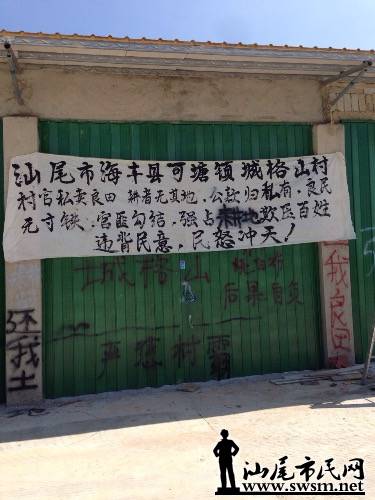 汕尾市海丰县可塘镇城格山村
村官私卖良田 耕者无其地，公款归私有，良民
无寸铁，官匪勾结，强占耕地欺压百姓
违背民意，民怒冲天！
城格山
后果自负
严惩村霸
还我土
还我良田
汕尾市民网
www.swsm.net